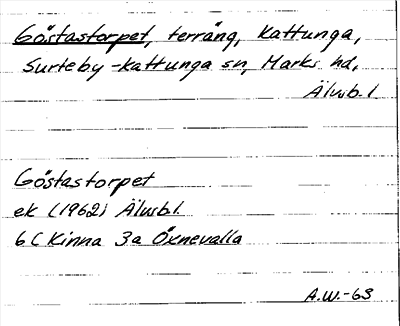 Göstastorpet, terräng, Kattunga,
Surteby-Kattunga sn, Marks hd,
Älvsb. l.
Göstastorpet
ek (1962) Älvsb. l.
6 C Kinna 3a Öxnevalla
A.W.-63